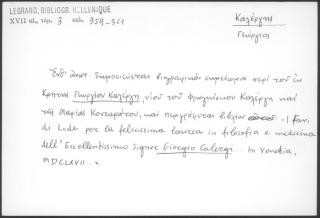 LEGRAND, BIBLIOGR. HELLENIQUE
XVII αι. τομ. 3 σελ. 359-361
Καλέργης
Γεώργιος
Ἐνθ' ἄνωτ. δημοσιεύεται βιογραφικὸν σημείωμα περὶ τοῦ ἐκ
Κρήτης Γεωργίου Καλέργη, υἱοῦ τοῦ Φραγκίσκου Καλέργη καὶ
τῆς Μαρίας Κονταράτου, καὶ περιγράφεται βιβλίον - I fiori
di Lode per la felicissima laurea in filosofia e medicina
dell' Eccellentissimo Signor Giorgio Calergi... In Venetia,
MDCLXVII...